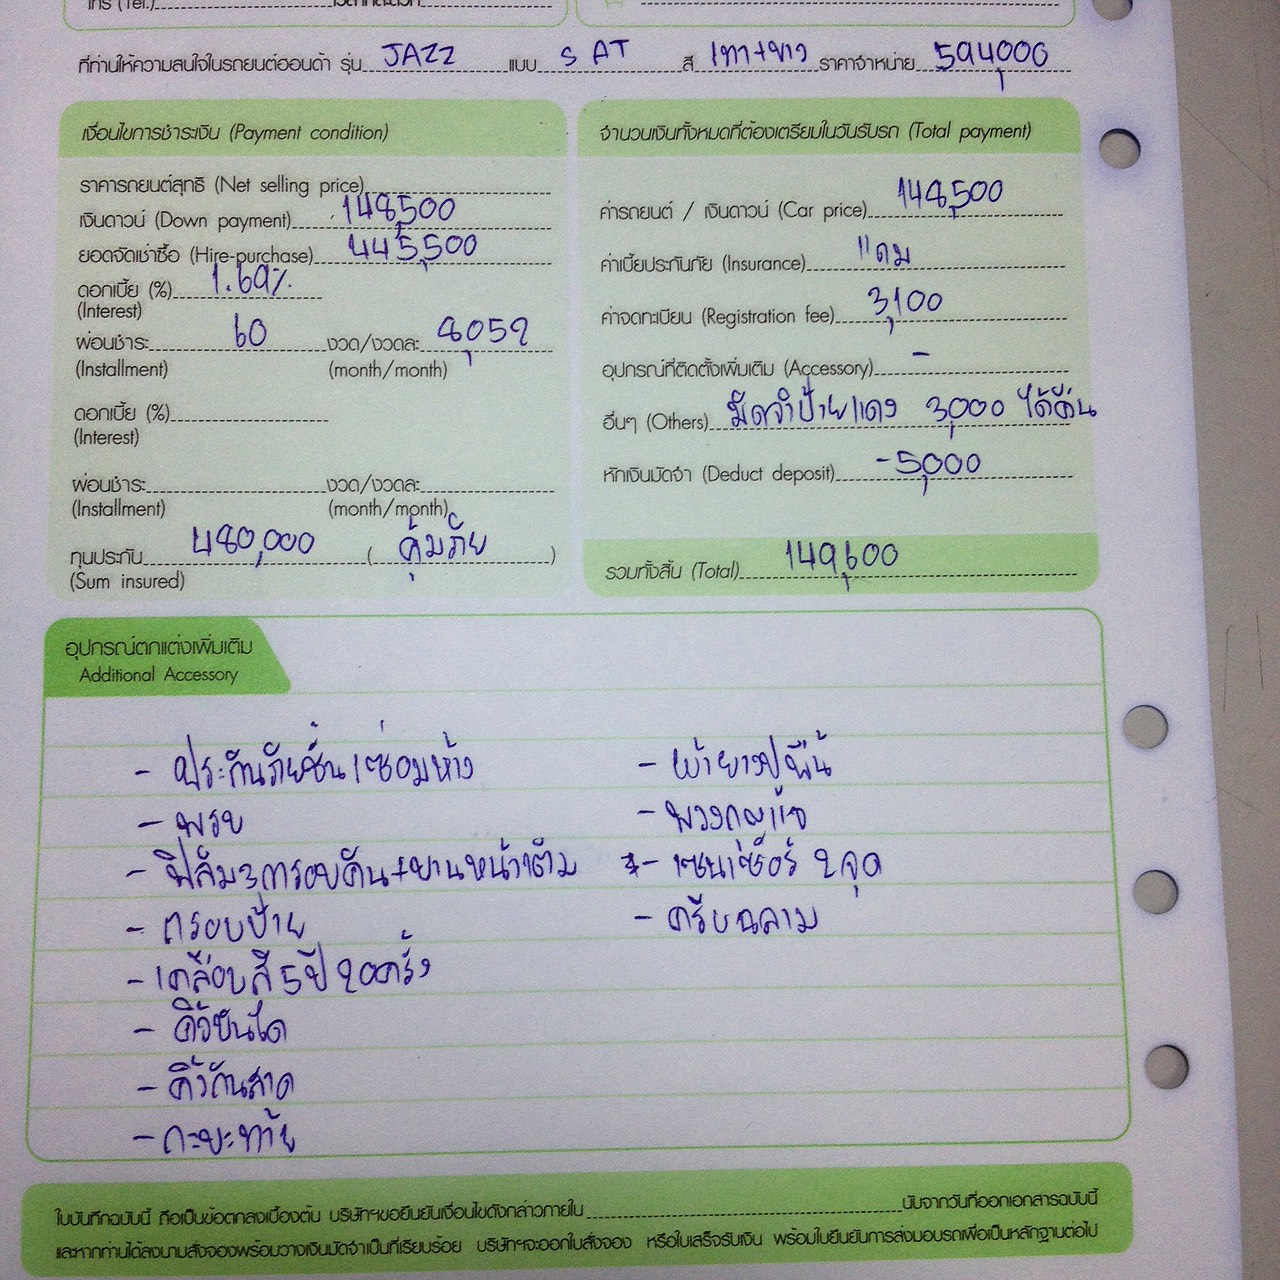 โทร (Tel.)
ที่ท่านให้ความสนใจในรถยนต์ฮอนด้า รุ่น JAZZ แบบ S AT สี เทา+ขาว ราคาจำหน่าย 594,000
เงื่อนไขการชำระเงิน (Payment condition)
ราคารถยนต์สุทธิ (Net selling price)
เงินดาวน์ (Down payment) 148,500
ยอดจัดเช่าซื้อ (Hire-purchase) 445,500
ดอกเบี้ย (%) 1.69%
(Interest)
ผ่อนชำระ 60 งวด/งวดละ 8,052
(Installment) (month/month)
ดอกเบี้ย (%)
(Interest)
ผ่อนชำระ งวด/งวดละ
(Installment) (month/month)
ทุนประกัน 480,000 (คุ้มภัย)
(Sum insured)
จำนวนเงินทั้งหมดที่ต้องเตรียมในวันรับรถ (Total payment)
ค่ารถยนต์ / เงินดาวน์ (Car price) 148,500
ค่าเบี้ยประกันภัย (Insurance) แถม
ค่าจดทะเบียน (Registration fee) 3,100
อุปกรณ์ที่ติดตั้งเพิ่มเติม (Accessory) -
อื่นๆ (Others) มัดจำป้ายแดง 3,000 ได้คืน
หักเงินมัดจำ (Deduct deposit) -5,000
รวมทั้งสิ้น (Total) 149,600
อุปกรณ์ตกแต่งเพิ่มเติม
Additional Accessory
- ประกันภัยชั้น 1 ซ่อมห้าง
- พรบ
- ฟิล์ม 3M รอบคัน+บานหน้าเต็ม
- กรอบป้าย
- เคลือบสี 5 ปี 20ครั้ง
- คิ้วบันได
- คิ้วกันสาด
- กะบะท้าย
- ผ้ายางปูพื้น
- พวงกุญแจ
*- เซนเซ็อร์ 2 จุด
- ครีบฉลาม
ใบบันทึกฉบับนี้ ถือเป็นข้อตกลงเบื้องต้น บริษัทฯขอยืนยันเงื่อนไขดังกล่าวภายใน นับจากวันที่ออกเอกสารฉบับนี้
และหากท่านได้ลงนามสั่งจองพร้อมวางเงินมัดจำเป็นที่เรียบร้อย บริษัทฯจะออกใบสั่งจอง หรือใบเสร็จรับเงิน พร้อมใบยืนยันการส่งมอบรถเพื่อเป็นหลักฐานต่อไป